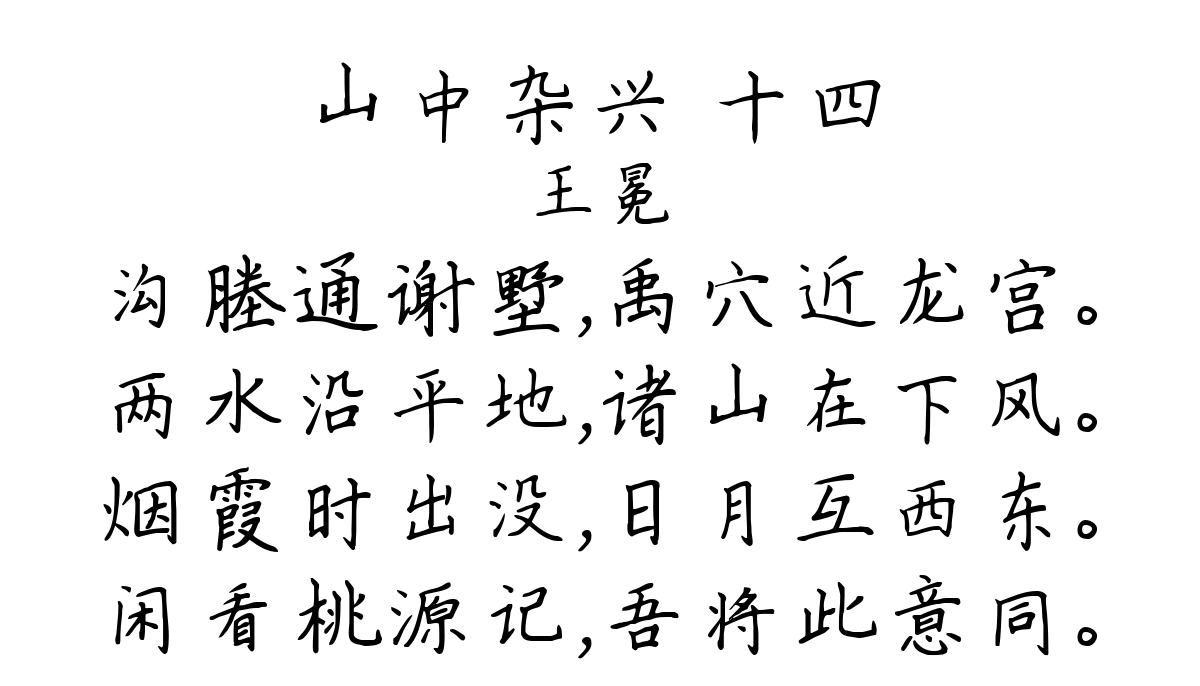 山中杂兴 十四
王冕
沟塍通谢墅,禹穴近龙宫。
两水沿平地,诸山在下风。
烟霞时出没,日月互西东。
闲看桃源记,吾将此意同。